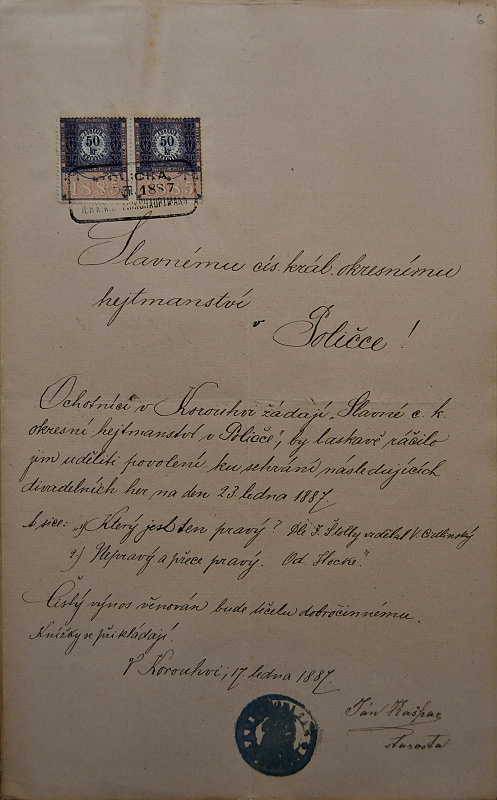 6
50 kr 50 kr
1885
1887
Slavnému cís. král. okresnímu
hejtmanství
v Poličce!
Ochotníci v Korouhvi žádají „Slavné c. k.
okresní hejtmanství v Poličce", by laskavě ráčilo
jim uděliti povolení ku sehrání následujících
divadelních her na den 23. ledna 1887.
A sice: 1) „Který jest ten pravý? Dle J. Štolby vzdělal V.
2.) Nepravý a přece pravý. Od
Čistý výnos věnován bude účelu dobročinnému.
Knížky se přikládají.
V Korouhvi, 17. ledna 1887.
Ján Kašpar
starosta